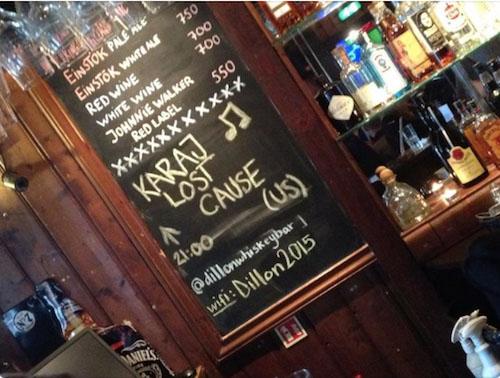 EINSTÖK PALE ALE 750
EINSTÖK WHITE ALE 700
RED WINE 700
WHITE WINE
JOHNNIE WALKER 550
RED LABEL
XXXXXXXXXXX
KARAJ
LOST
CAUSE
(US)
21:00
@dillonwhiskeybar
wifi: Dillon2015
DANIEL'S